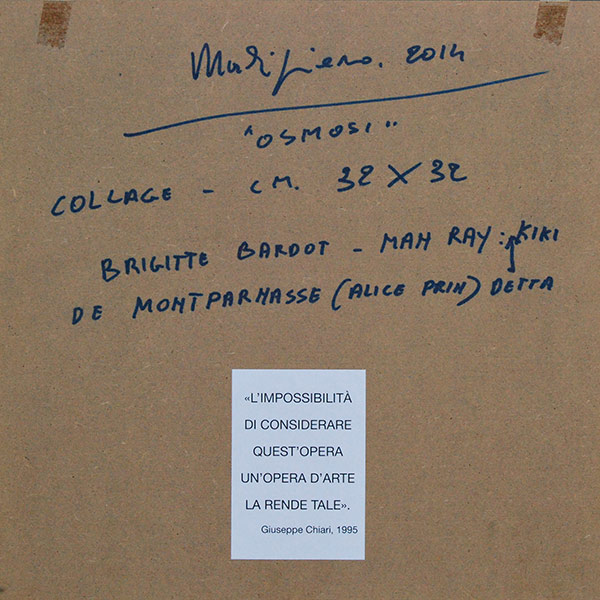 Malipiero. 2014
"OSMOSI"
COLLAGE - CM. 32 X 32
BRIGITTE BARDOT - MAN RAY: KIKI
DE MONTPARNASSE (ALICE PRIN) DETTA
«L'IMPOSSIBILITÀ
DI CONSIDERARE
QUEST'OPERA
UN'OPERA D'ARTE
LA RENDE TALE».
Giuseppe Chiari, 1995